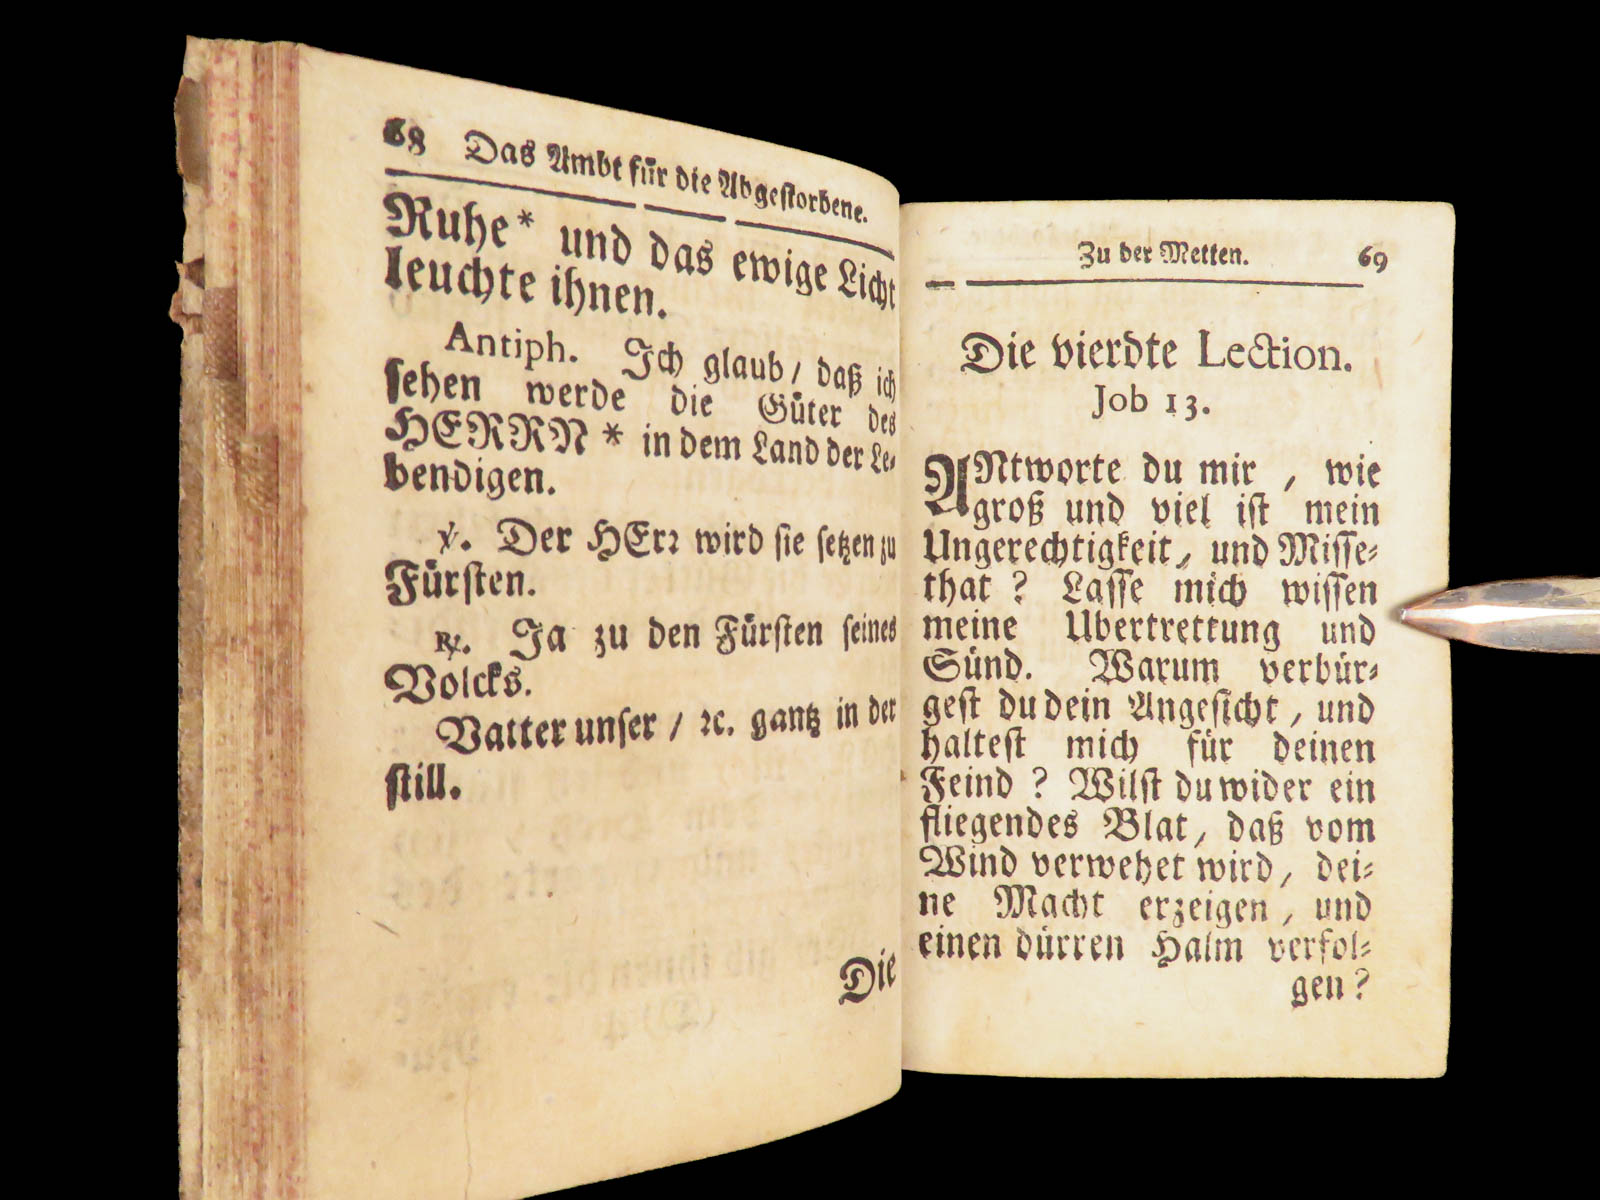 68 Das Ambt für die Abgestorbene.
Ruhe * und das ewige Licht
leuchte ihnen.
Antiph. Ich glaub / daß ich
sehen werde die Güter des
HERRN * in dem Land der Le-
bendigen.
℣. Der HErr wird sie setzen zu
Fürsten.
℟. Ja zu den Fürsten seines
Volcks.
Vatter unser / ꝛc. gantz in der
still.
Die
Zu der Metten. 69
Die vierdte Lection.
Job 13.
ANtworte du mir , wie
groß und viel ist mein
Ungerechtigkeit, und Misse-
that ? Lasse mich wissen
meine Ubertrettung und
Sünd. Warum verbür-
gest du dein Angesicht , und
haltest mich für deinen
Feind ? Wilst du wider ein
fliegendes Blat, daß vom
Wind verwehet wird, dei-
ne Macht erzeigen , und
einen dürren Halm verfol-
gen ?